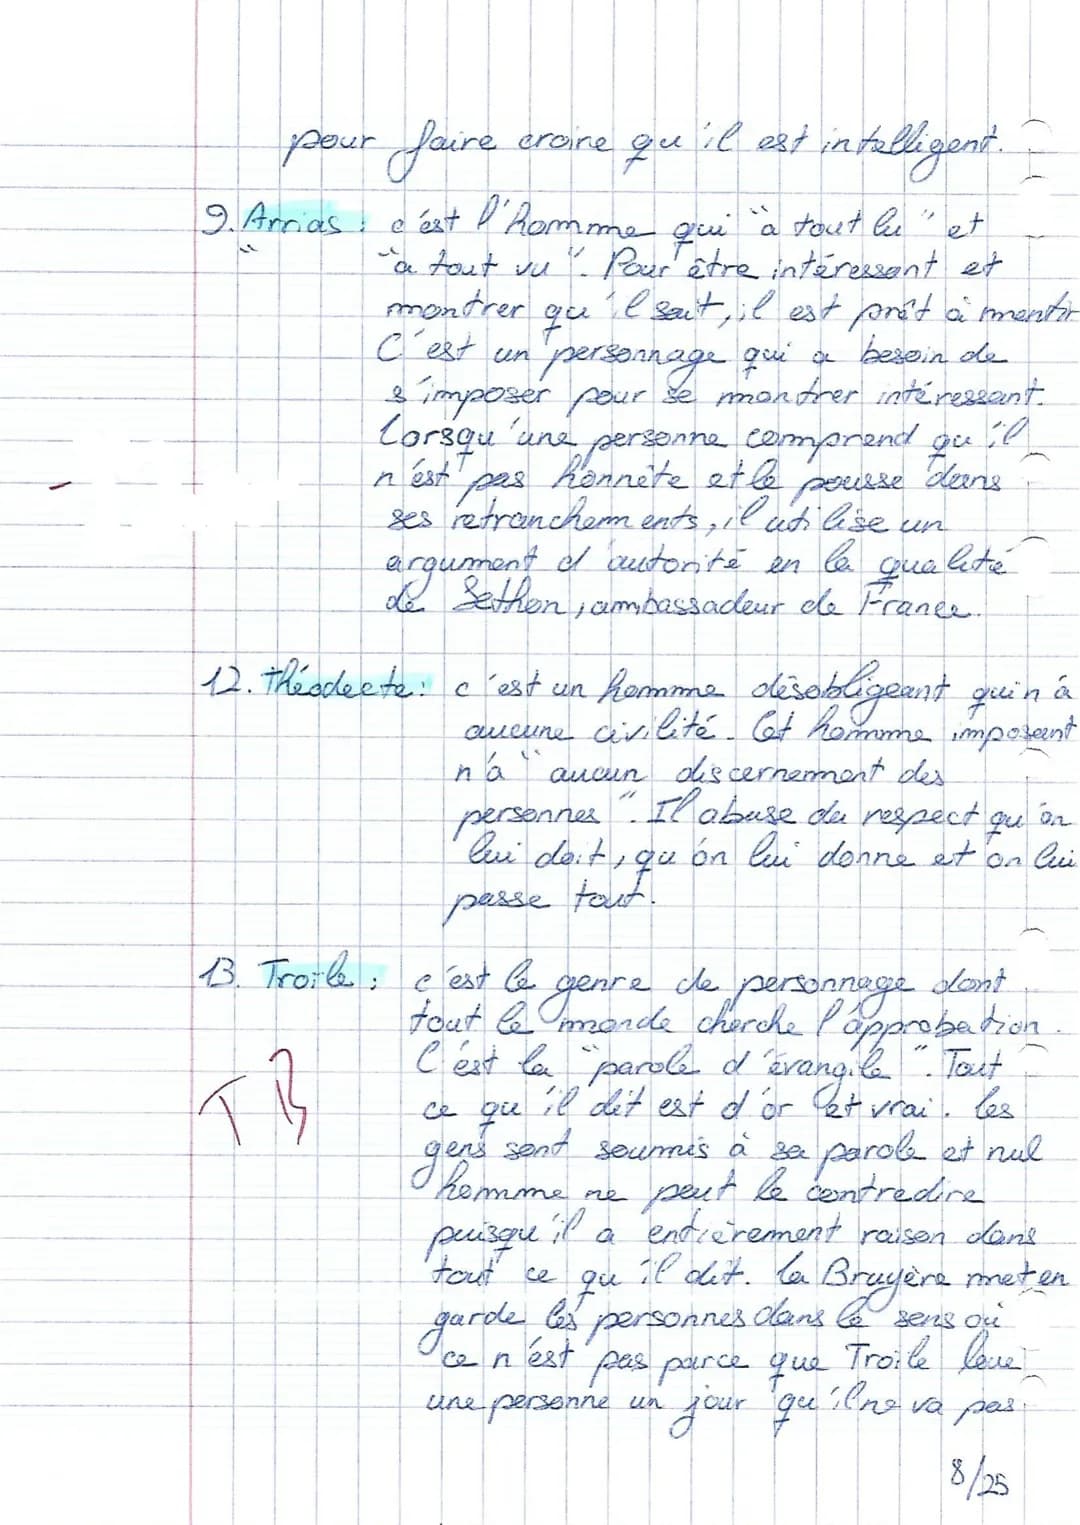 pour faire croire qu'il est intelligent.
9. Arrias : c'est l'homme qui "a tout lu" et
"a tout vu". Pour être intéressant et
montrer qu'il sait, il est prêt à mentir
C'est un personnage qui a besoin de
s'imposer pour se montrer intéressant.
Lorsqu'une personne comprend qu'il
n'est pas honnête et le pousse dans
ses retranchements, il utilise un
argument d'autorité en la qualité
de Sethon, ambassadeur de France.
12. Théodecte : c'est un homme désobligeant qui n'a
aucune civilité. Cet homme imposant
n'a "aucun discernement des
personnes". Il abuse du respect qu'on
lui doit, qu'on lui donne et on lui
passe tout.
13. Troïle : c'est le genre de personnage dont
tout le monde cherche l'approbation.
C'est la "parole d'évangile". Tout
ce qu'il dit est d'or et vrai. Les
TB
gens sont soumis à sa parole et nul
homme ne peut le contredire
puisqu'il a entièrement raison dans
tout ce qu'il dit. La Bruyère met en
garde les personnes dans le sens où
ce n'est pas parce que Troïle loue
une personne un jour qu'il ne va pas
8/25